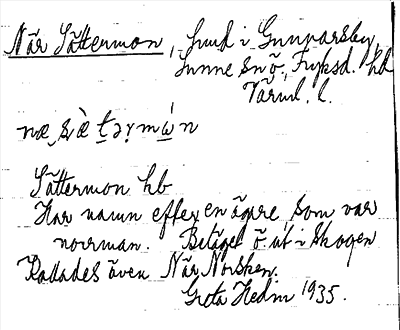 När Sättermon, hmd i Gunnarsby,
Sunne sn ö., Fryksd. hd
Värml. l.
Sättermon hb
Har namn efter en ägare, som var
norrman. Beläget ö. ut i skogen
Kallades även När Norsken.
Greta Hedin 1935.